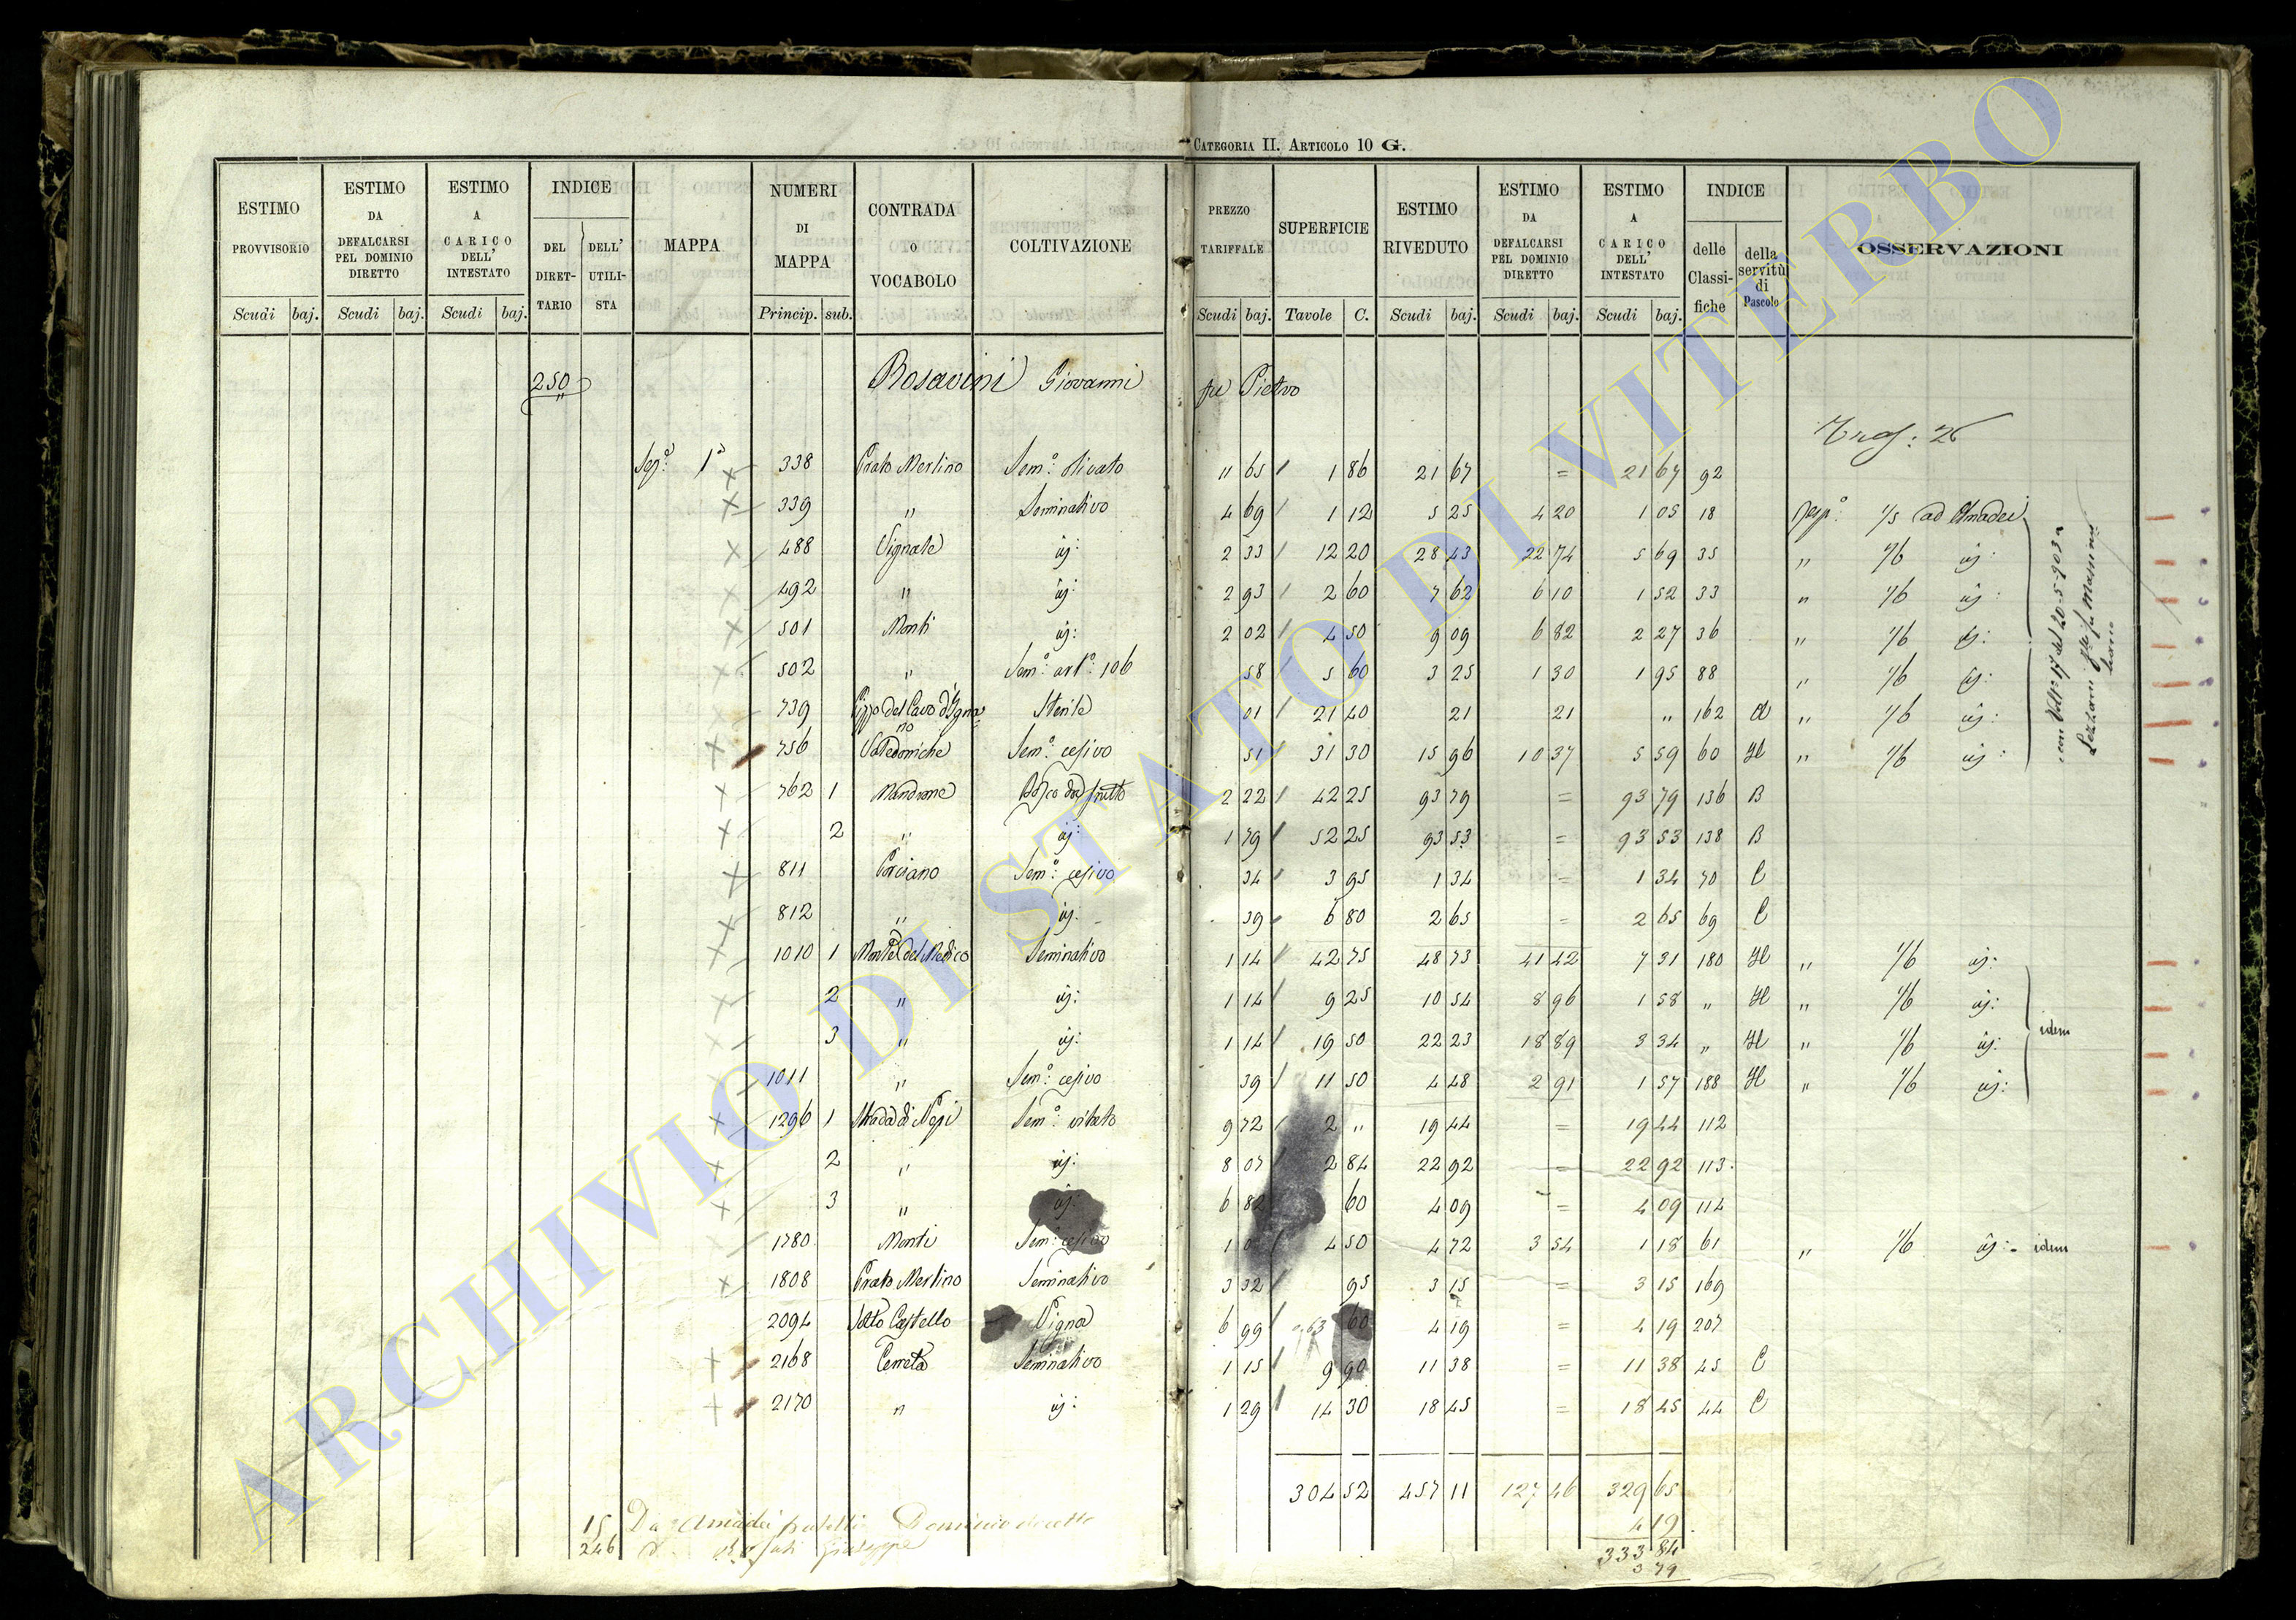 CATEGORIA II. ARTICOLO 10 G.
ESTIMO PROVVISORIO Scudi baj.
ESTIMO DA DEFALCARSI PEL DOMINIO DIRETTO Scudi baj.
ESTIMO A CARICO DELL' INTESTATO Scudi baj.
INDICE DEL DIRETTARIO DELL' UTILISTA
MAPPA
NUMERI DI MAPPA Princip. sub.
CONTRADA O VOCABOLO
COLTIVAZIONE
PREZZO TARIFFALE Scudi baj.
SUPERFICIE Tavole C.
ESTIMO RIVEDUTO Scudi baj.
ESTIMO DA DEFALCARSI PEL DOMINIO DIRETTO Scudi baj.
ESTIMO A CARICO DELL' INTESTATO Scudi baj.
INDICE delle Classifiche della servitù di Pascolo
OSSERVAZIONI
250 Rosavini Giovanni fu Pietro
26
Sez.e 1a 338 Prato Merlino Sem.o olivato 11 65 1 86 21 67 = 21 67 92
339 " Seminativo 4 69 1 12 5 25 4 20 1 05 18 Risp.o 1/5 ad Amadei
488 Vignale id: 2 33 12 20 28 43 22 74 5 69 35 " 1/6 id:
492 " id: 2 93 2 60 7 62 6 10 1 52 33 " 1/6 id:
501 Monti id: 2 02 4 50 9 09 6 82 2 27 36 " 1/6 id:
502 " Sem.o art.o 106 58 5 60 3 25 1 30 1 95 88 " 1/6 id:
739 Pizzo del Cavo d'Ignano Sterile 01 21 40 21 21 " 162 " 1/6 id:
756 Valdomiche Sem.o cesivo 51 31 30 15 96 10 37 5 59 60 H " 1/6 id:
762 1 Mandrane Bosco da frutto 2 22 42 25 93 79 = 93 79 136 B
2 " id: 1 79 52 25 93 53 = 93 53 138 B
811 Porciano Sem.o cesivo 34 3 95 1 34 = 1 34 70 C
812 " id: 39 6 80 2 65 = 2 65 69 C
1010 1 Monte del Medico Seminativo 1 14 42 75 48 73 41 42 7 31 180 H " 1/6 id:
2 " id: 1 14 9 25 10 54 8 96 1 58 " H " 1/6 id:
3 " id: 1 14 19 50 22 23 18 89 3 34 " H " 1/6 id: idem
1011 " Sem.o cesivo 39 11 50 4 48 2 91 1 57 188 H " 1/6 id:
1296 1 Strada di Nepi Sem.o vitato 9 72 2 " 19 44 = 19 44 112
2 " id: 8 07 2 84 22 92 = 22 92 113
3 " id: 6 82 60 4 09 = 4 09 114
1780 Monti Sem.o cesivo 1 4 50 4 72 3 54 1 18 61 " 1/6 id: idem
1808 Prato Merlino Seminativo 3 32 95 3 15 = 3 15 169
2094 Sotto Castello Vigna 6 99 60 4 19 = 4 19 207
2168 Cerreta Seminativo 1 15 9 90 11 38 = 11 38 45 C
2170 " id: 1 29 14 30 18 45 = 18 45 44 C
con Volt.a 17 del 20-5-903 a
fu Massimiliano
304 52 457 11 127 46 329 65
4 19
333 84
3 79
15 Da Amadei fratelli Dominio diretto
246 d. Giuseppe
ARCHIVIO DI STATO DI VITERBO